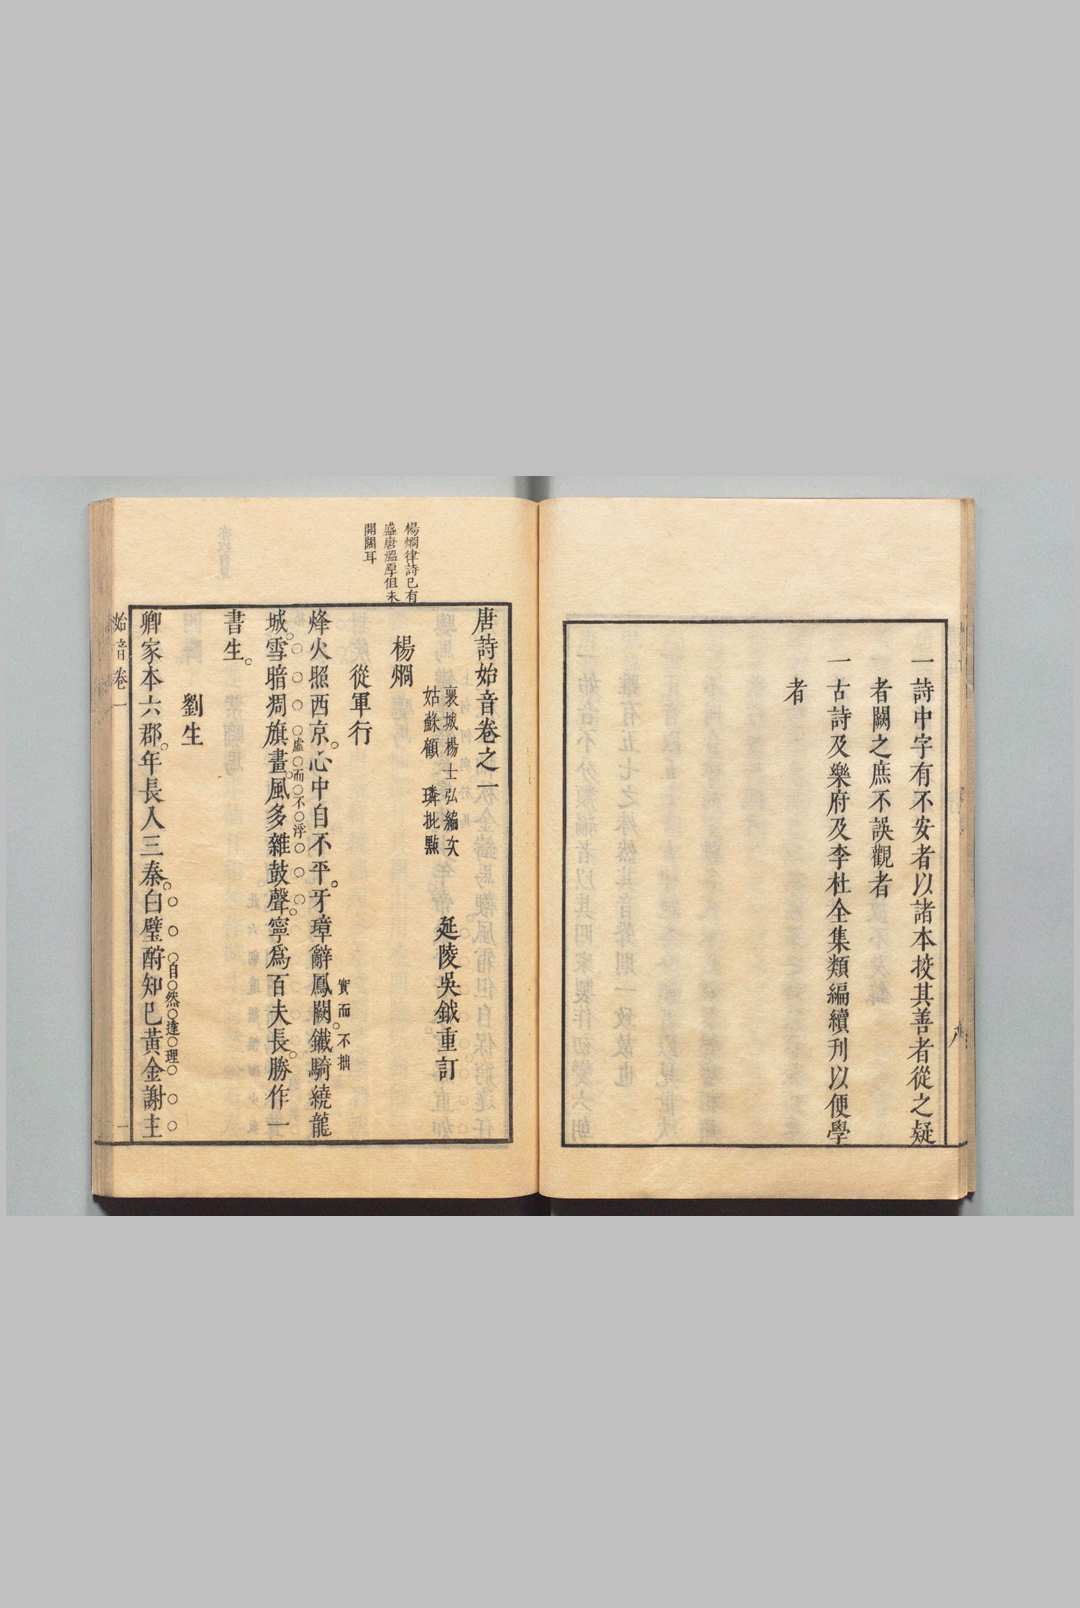 一詩中字有不安者以諸本挍其善者從之疑
者闕之庶不誤觀者
一古詩及樂府及李杜全集類編續刋以便學
者
楊烱律詩已有
盛唐溫厚但未
開闊耳
唐詩始音卷之一
襄城楊士弘編次
姑蘇顧璘批點
延陵吳鉞重訂
楊烱
從軍行
實而不拙
烽火照西京心中自不平牙璋辭鳳闕鐵騎繞龍
虛而不浮
城雪暗凋旗畫風多雜鼓聲寧爲百夫長勝作一
書生
劉生
自然達理
卿家本六郡年長入三秦白璧酧知己黃金謝主
始音卷一
一